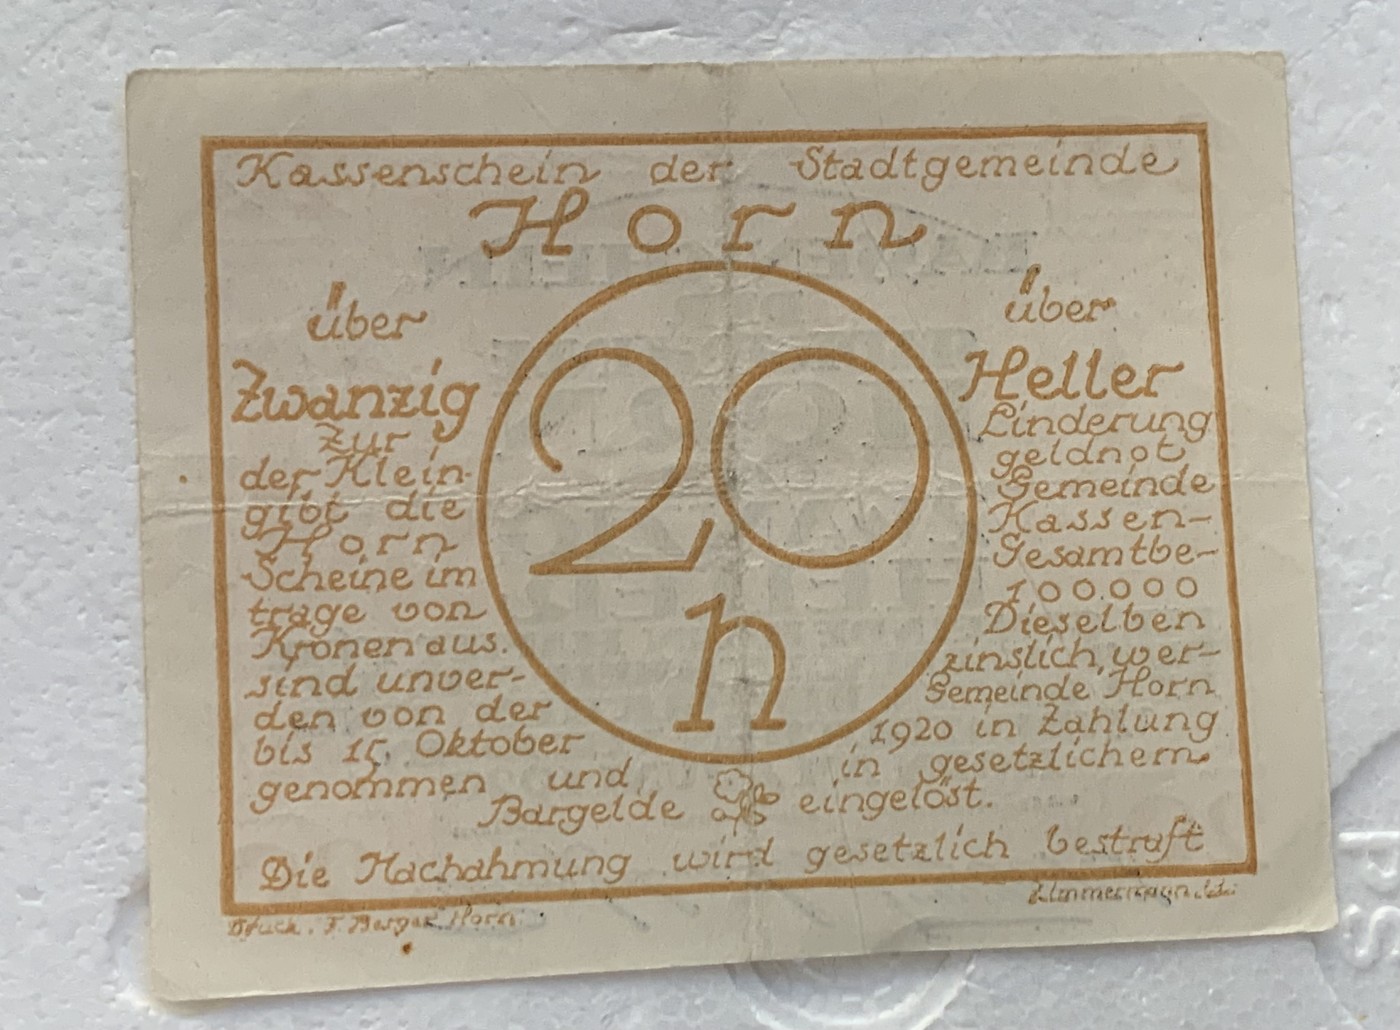 Kassenschein der Stadtgemeinde
Horn
über über
Zwanzig Heller
Zur Linderung
der Klein- geldnot
gibt die Gemeinde
Horn Kassen-
Scheine im Gesamtbe-
trage von 100.000
Kronen aus. Dieselben
sind unver- zinslich, wer-
den von der Gemeinde Horn
bis 15. Oktober 1920 in Zahlung
genommen und in gesetzlichem
Bargelde eingelöst.
20
h
Die Nachahmung wird gesetzlich bestraft
Druck. F. Berger, Horn
Zimmermann